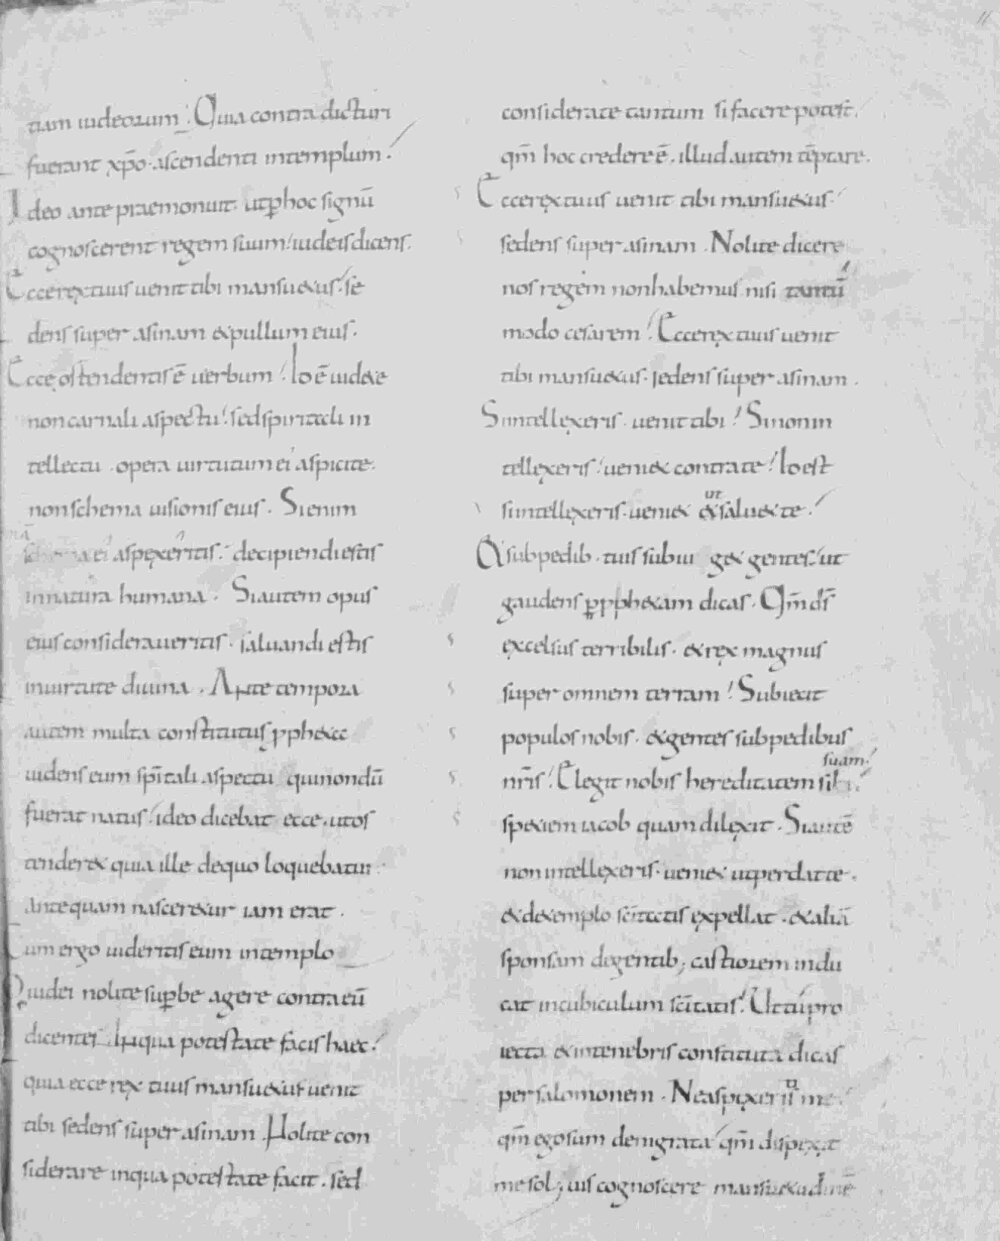 tiam iudeorum. Quia contra dicturi
fuerant xp̄o. ascendenti intemplum.
Ideo ante praemonuit. utphoc signū
cognoscerent regem suum iudeis dicens.
Eccerextuus uenit tibi mansuetus. se
dens super asinam etpullum eius.
Ecce ostendentis ē uerbum. Id ē uidete
non carnali aspectu. sed spiritali in
tellectu. opera uirtutum ei aspicite.
non schema uisionis eius. Sienim
schema ei aspexeritis. decipiendi estis
innatura humana. Siautem opus
eius consideraueritis. saluandi estis
inuirtute diuina. Ante tempora
autem multa constitutus ppheta
uidens eum spītali aspectu quinondū
fuerat natus. ideo dicebat ecce. utos
tenderet quia ille dequo loquebatur
antequam nasceretur iam erat.
Cum ergo uideritis eum intemplo
Iudei nolite supbe agere contra eū
dicentes. Inqua potestate facis haec.
quia ecce rex tuus mansuetus uenit
tibi sedens super asinam. Nolite con
siderare inqua potestate facit. sed
considerate tantum si facere potest.
qm̄ hoc credere ē. illud autem tēptare.
Eccerextuus uenit tibi mansuetus.
sedens super asinam. Nolite dicere
nos regem nonhabemus nisi tantū
modo cesarem. Eccerex tuus uenit
tibi mansuetus. sedens super asinam.
Siintellexeris. uenit tibi. Sinonin
tellexeris. ueniet contra te. Id est
siintellexeris. ueniet ut et saluet te.
Et subpedib. tuis subiu get gentes. ut
gaudens p pphetam dicas. Qm̄ ds̄
excelsus terribilis. et rex magnus
super omnem terram. Subiecit
populos nobis. et gentes subpedibus
nr̄is. Elegit nobis hereditatem sibi suam.
speciem iacob quam dilexit. Siautē
non intellexeris. ueniet utperdat te.
et detemplo sc̄itatis expellat. et aliā
sponsam degentib; castiorem indu
cat incubiculum sc̄itatis. Uttu pro
iecta et intenebris constituta dicas
per salomonem. Neaspexeritis me.
qm̄ egosum denigrata qm̄ dispexit
me sol; uis cognoscere mansuetudinē